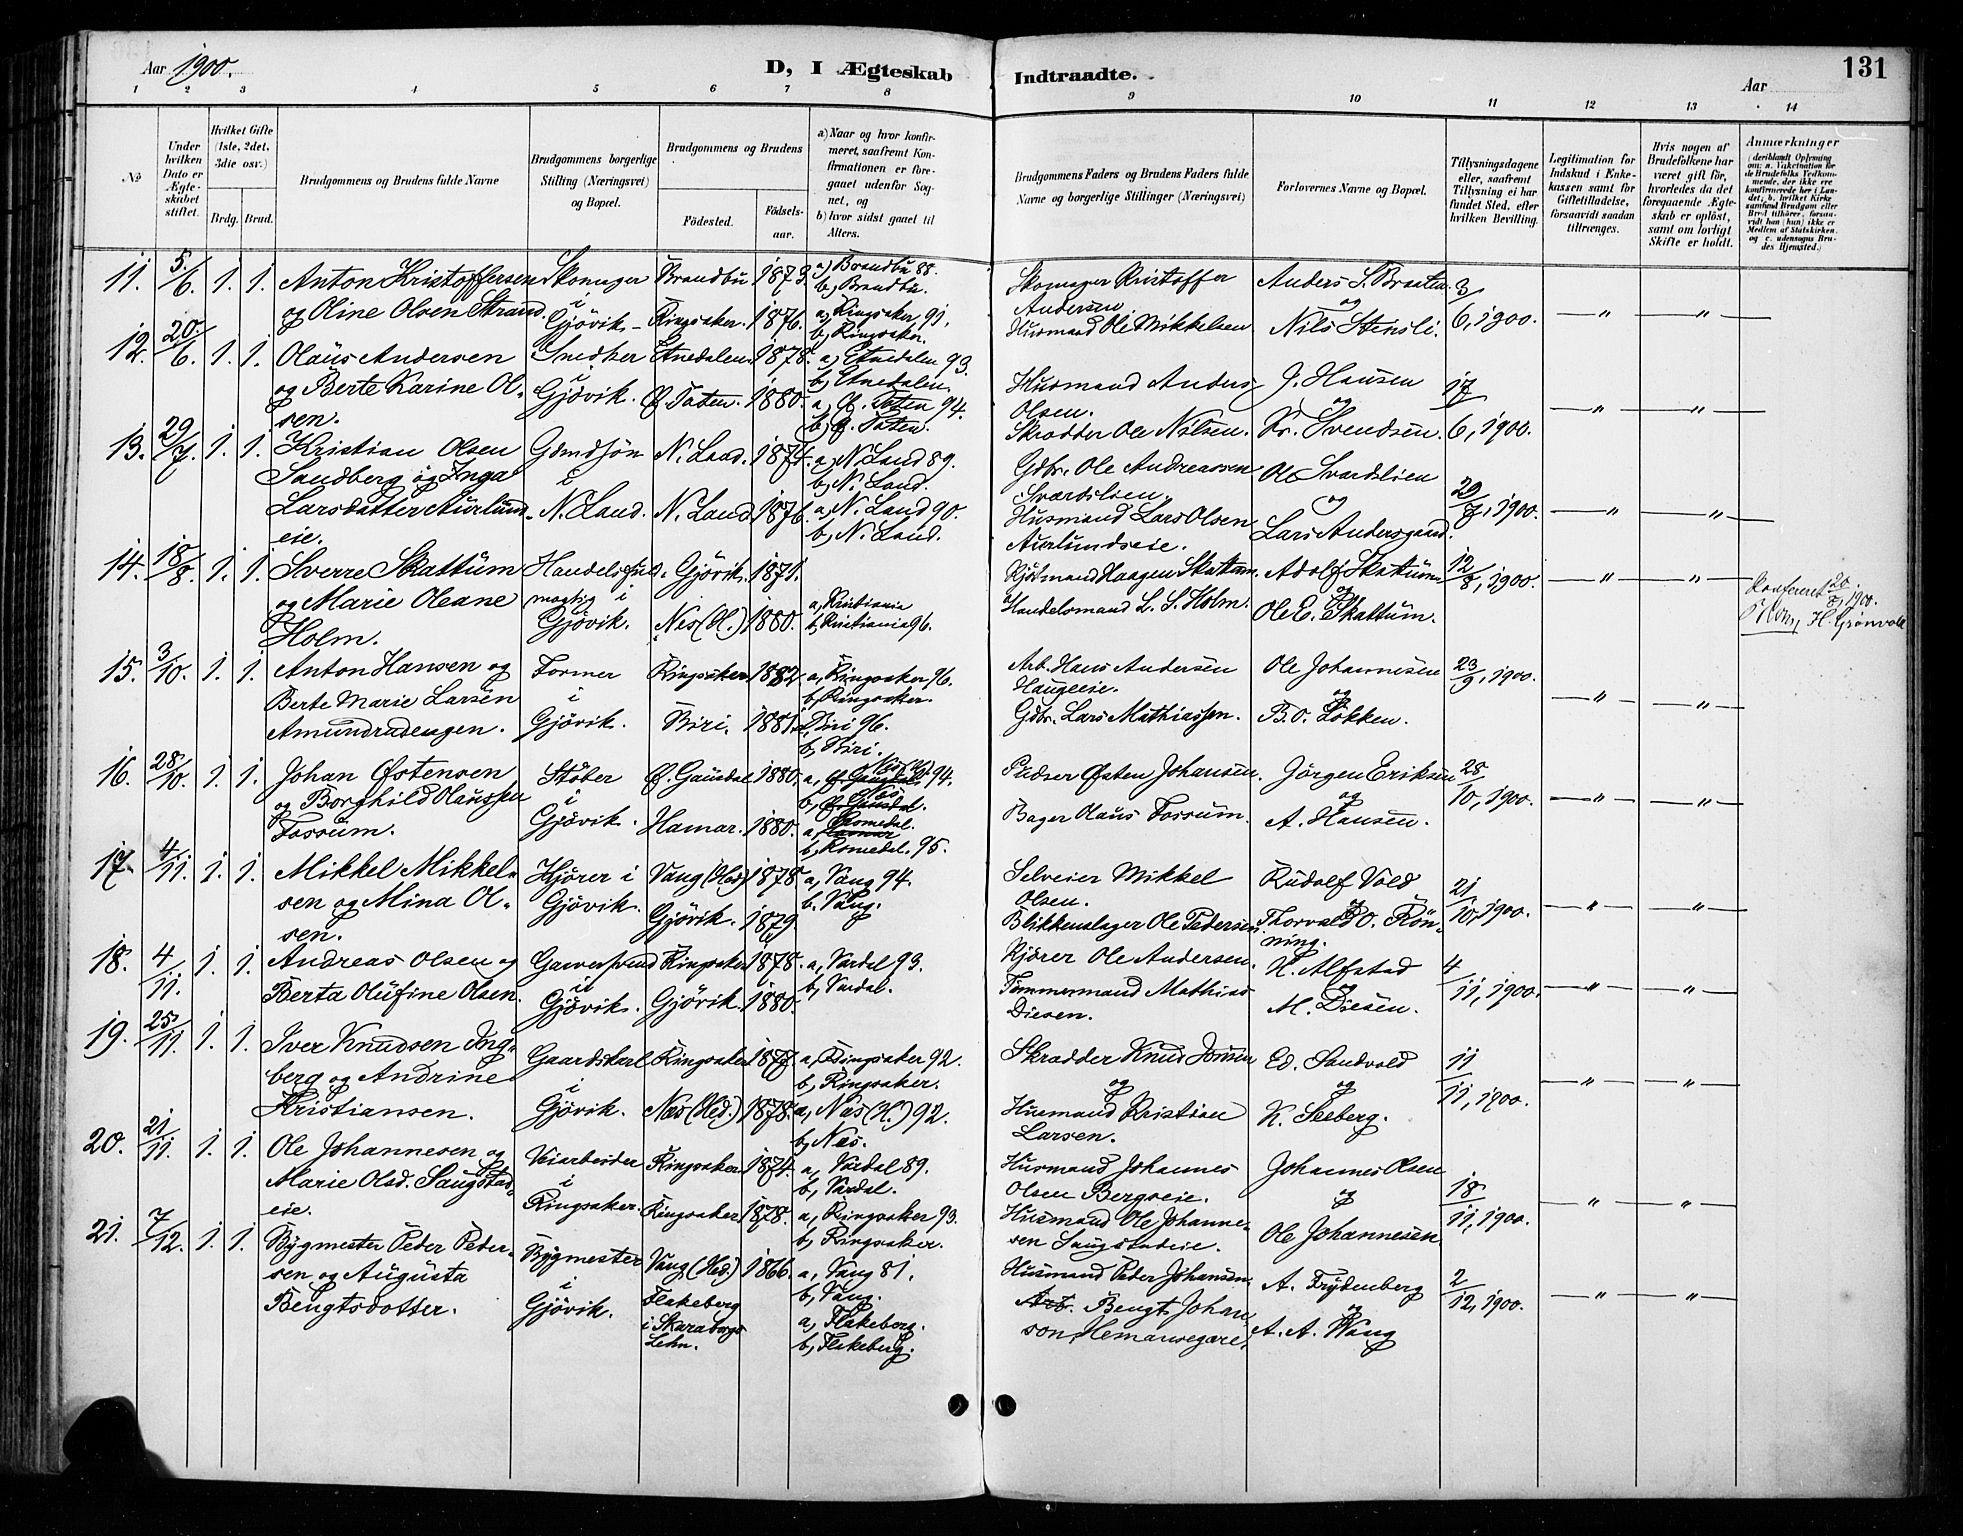 Aar 1900.
D, I Ægteskab Indtraadte.
131
Aar
1 2 3 4 5 6 7 8 9 10 11 12 13 14
№
Under hvilken Dato er Ægteskabet stiftet.
Hvilket Gifte (1ste, 2det, 3die osv.)
Brdg. Brud.
Brudgommens og Brudens fulde Navne
Brudgommens borgerlige Stilling (Næringsvei) og Bopæl.
Brudgommens og Brudens
Fødested. Fødselsaar.
a) Naar og hvor konfirmeret, saafremt Konfirmationen er foregaaet udenfor Sognet, og
b) hvor sidst gaaet til Alters.
Brudgommens Faders og Brudens Faders fulde Navne og borgerlige Stillinger (Næringsvei)
Forlovernes Navne og Bopæl.
Tillysningsdagene eller, saafremt Tillysning ei har fundet Sted, efter hvilken Bevilling.
Legitimation for Indskud i Enkekassen samt for Giftetilladelse, forsaavidt saadan tiltrænges.
Hvis nogen af Brudefolkene har været gift før, hvorledes da det foregaaende Ægteskab er opløst, samt om lovligt Skifte er holdt.
Anmærkninger
11. 5/6. 1. 1. Anton Kristoffersen og Oline Olsen Strand. Skomager i Gjövik Brandbu 1873. a) Brandbu 88. b, Brandbu.
Ringsaker. 1876. a, Ringsaker 91. b, Ringsaker.
Skomager Kristoffer Andersen Husmand Ole Mikkelsen Anders S. Braaten og Nils Stensli. 3/6, 1900. — " — — " —
12. 20/6. 1. 1. Olaus Andersen og Berte Karine Olsen. Smed her i Gjövik. Etnedalen 1878. a, Etnedalen 93. b, Etnedalen.
Ø. Toten. 1880. a, Ø. Toten 94. b, Ø. Toten.
Husmand Anders Olsen. Skrædder Ole Nilsen. J. Hansen og Kr. Svendsen. 17/6, 1900. — " — — " —
13. 29/7. 1. 1. Kristian Olsen Sandberg og Inga Larsdatter Aurlundeie. Gdmdsön i N. Land. N. Land. 1874. a, N. Land 89. b, N. Land.
N. Land 1876. a, N. Land 90. b, N. Land.
Gdbr. Ole Andreassen Sværdslien. Husmand Lars Olsen Aurlundseie. Ole Svardslien og Lars Andersgaard. 29/7, 1900. — " — — " —
14. 18/8. 1. 1. Sverre Skattum og Marie Oleane Holm. Handelsfuldmægtig i Gjövik. Gjövik. 1871.
Nes (H.) 1880. a, Kristiania b, Kristiania 96.
Kjöbmand Haagen Skattum. Handelsmand L. S. Holm. Adolf Skattum og Ole E. Skattum. 12/8, 1900. — " — — " — Konfereret 20/8, 1900. H. Grönvold
15. 3/10. 1. 1. Anton Hansen og Berte Marie Larsen Amundrudengen. Former i Gjövik. Ringsaker 1882 a, Ringsaker 96. b, Ringsaker.
Biri. 1881. a, Biri 96. b, Biri.
Arb. Hans Andersen Haugeeie. Gdbr. Lars Mathiassen. Ole Johannesen og B. O. Løkken. 23/9, 1900. — " — — " —
16. 28/10. 1. 1. Johan Østensen og Borghild Olaussen Fossum. Støber i Gjövik. Ø. Gausdal 1880. a, Ø. Gausdal Næs 94. b, Ø. Gausdal. Næs
Hamar. 1880. a, Hamar Romedal. b, Romedal. 95.
Pudser Østen Johansen. Bager Olaus Fossum. Jörgen Eriksen og A. Hansen. 28/10, 1900. — " — — " —
17. 4/11. 1. 1. Mikkel Mikkelsen og Mina Olsen. Kjører i Gjövik. Vang (Hed) 1878 a, Vang 94. b. Vang.
Gjövik. 1879.
Selveier Mikkel Olsen. Blikkenslager Ole Pedersen. Rudolf Vold og Thorvald O. Rönning. 21/10, 1900. — " — — " —
18. 4/11. 1. 1. Andreas Olsen og Berta Olufine Olsen. Garversvend i Gjövik. Ringsaker 1878. a, Vardal 93. b, Vardal.
Gjövik. 1880.
Kjörer Ole Andersen. Tømmermand Mathias Diesen. H. Alfstad og M. Diesen. 4/11, 1900. — " — — " —
19. 25/11. 1. 1. Iver Knudsen Ingberg og Andrine Kristiansen. Gaardskarl i Gjövik. Ringsaker 1877. a, Ringsaker 92. b, Ringsaker.
Næs (Hed.) 1878. a, Næs (H.) 92. b, Næs.
Skrædder Knud Jonsen og Husmand Kristian Larsen. Ed. Sandvold og K. Seeberg. 11/11, 1900. — " — — " —
20. 21/11. 1. 1. Ole Johannesen og Marie Olsd. Saugstadeie. Veiarbeider i Ringsaker. Ringsaker 1874. a, Vardal 89. b, Vardal.
Ringsaker 1878. a, Ringsaker 93. b, Ringsaker.
Husmand Johannes Olsen Bergseie. Husmand Ole Johannesen Saugstadeie. Johannes Olsen og Ole Johannesen. 18/11, 1900. — " — — " —
21. 7/12. 1. 1. Bygmester Peder Pedersen og Augusta Bengtsdotter. Bygmester i Gjövik. Vang (Hed.) 1866. a, Vang 81. b, Vang.
Flakeberg i Skaraborgs Lehn. a, Flakeberg. b, Flakeberg.
Husmand Peder Johansen. Arb. Bengt Johanson, Hemansegare. A. Frydenberg og A. A. Wang 2/12, 1900. — " — — " —